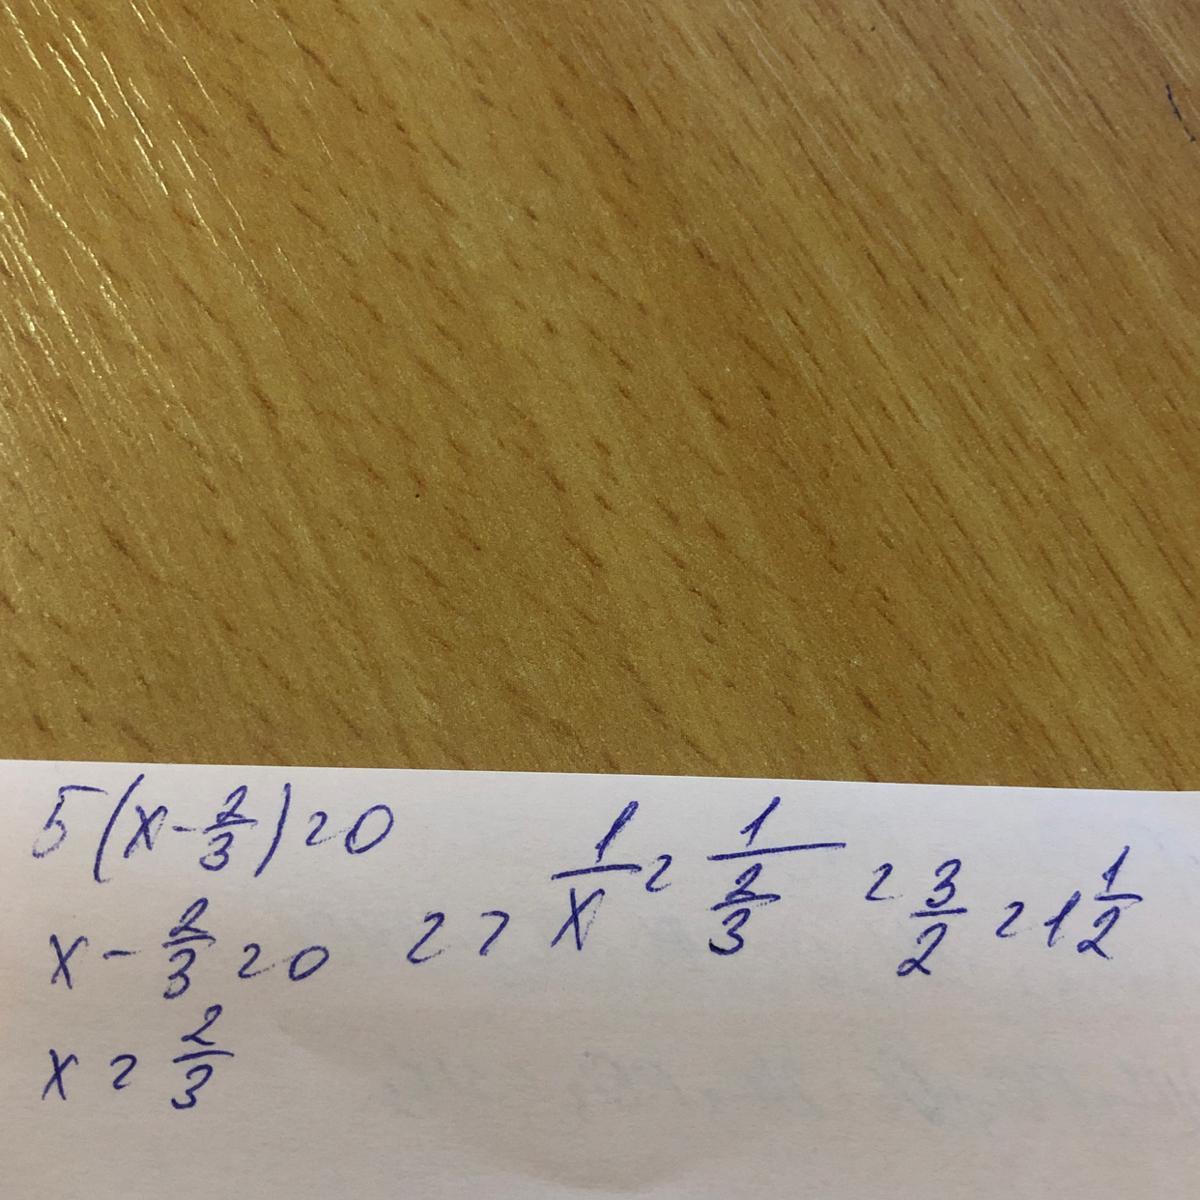 5(x-2/3)=0
x-2/3=0 => 1/x=1/(2/3)=3/2=1 1/2
x=2/3